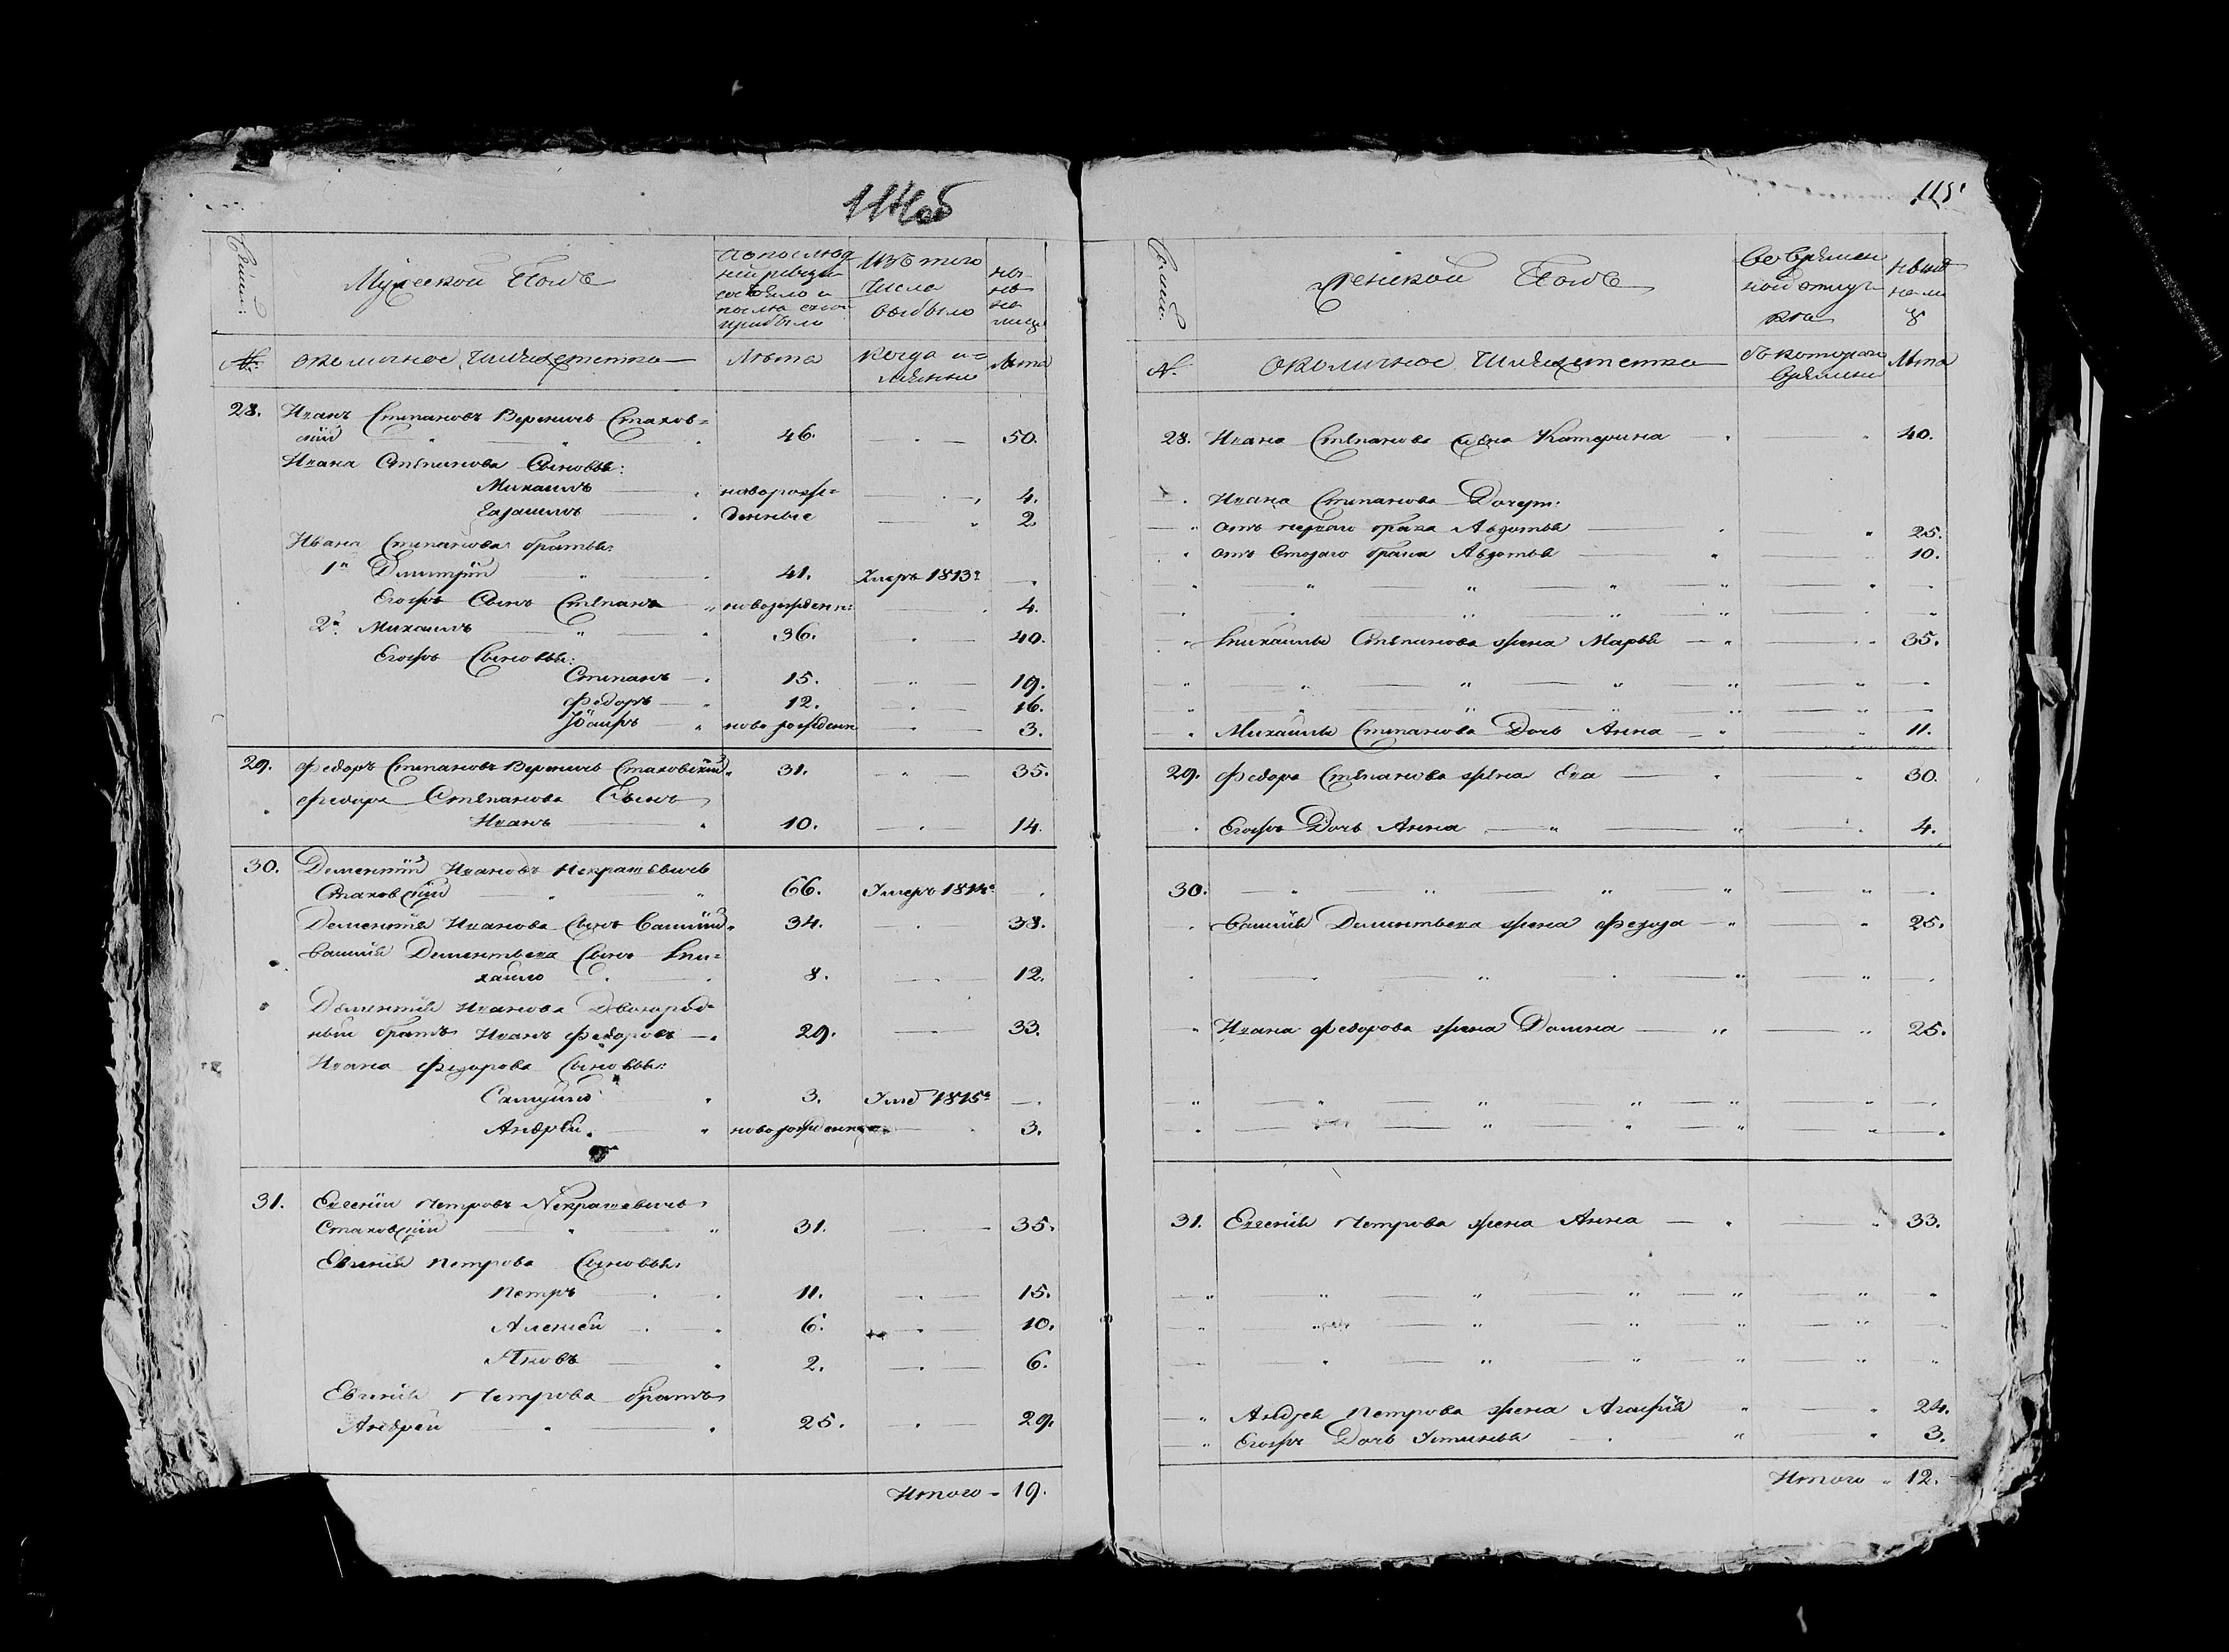 114об
Семьи.
Мужеской Полъ
По послѣд
ней ревизи
состояло и
послѣ того
прибыло
Изъ того
числа
выбыло
ны
нѣ
на
лицо
№.
околичное шляхетство
Лѣта
когда и
имянно
Лѣта
28. Иванъ Степановъ Вереничь Стахов=
скій 46. 50.
Ивана Степанова Сыновья:
Михаилъ новорож= 4.
Гаѵриилъ денные 2
Ивана Степанова братья:
1й Дмитрій 41. Умеръ 1813го
Егожъ Сынъ Степанъ новорожден 4.
2й. Михаилъ 36. 40.
Егожъ Сыновья:
Степанъ 15. 19.
Федоръ 12. 16.
новорожден 3.
29. Федоръ Степановъ Вереничь Стаховскій 31. 35.
Федора Степанова Сынъ
Иванъ 10. 14.
30. Дементій Ивановъ Некрашевичь
Стаховскій 66. Умеръ 1814го
Дементія Иванова Сынъ Василій 34. 38.
Василія Дементьева Сынъ Ми=
хайло 8. 12.
Дементія Иванова Двоюрод=
ный братъ Иванъ Федоровъ 29. 33.
Ивана Федорова Сыновья:
Самуйло 3. Умеръ 1815го
Андрей новорожден 3.
31. Евгеній Петровъ Некрашевичь
Стаховскій 31. 35.
Евгенія Петрова Сыновья:
Петръ 11. 15.
Алексей 6. 10.
Яковъ 2. 6.
Евгенія Петрова братъ
Андрей 25. 29.
Итого 19.
115
Семьи.
Женской Полъ
во времен
ной отлуч
кѣ
нынѣ
на ли
цо
№.
околичное шляхетство
съ котораго
времени
Лѣта
28. Ивана Степанова жена Катерина 40.
Ивана Степанова Дочери:
отъ перваго брака Авдотья 25.
отъ втораго брака Авдотья 10.
Михаила Степанова жена Марья 35.
Михаила Степанова Дочь Анна 11.
29. Федора Степанова жена Ева 30.
Егожъ Дочь Анна 4.
30.
Василія Дементьева жена 25.
Ивана Федорова жена Домина 25.
31. Евгенія Петрова жена Анна 33.
Андрея Петрова жена Агафія 24.
Егожъ Дочь Устинья 3.
Итого 12.